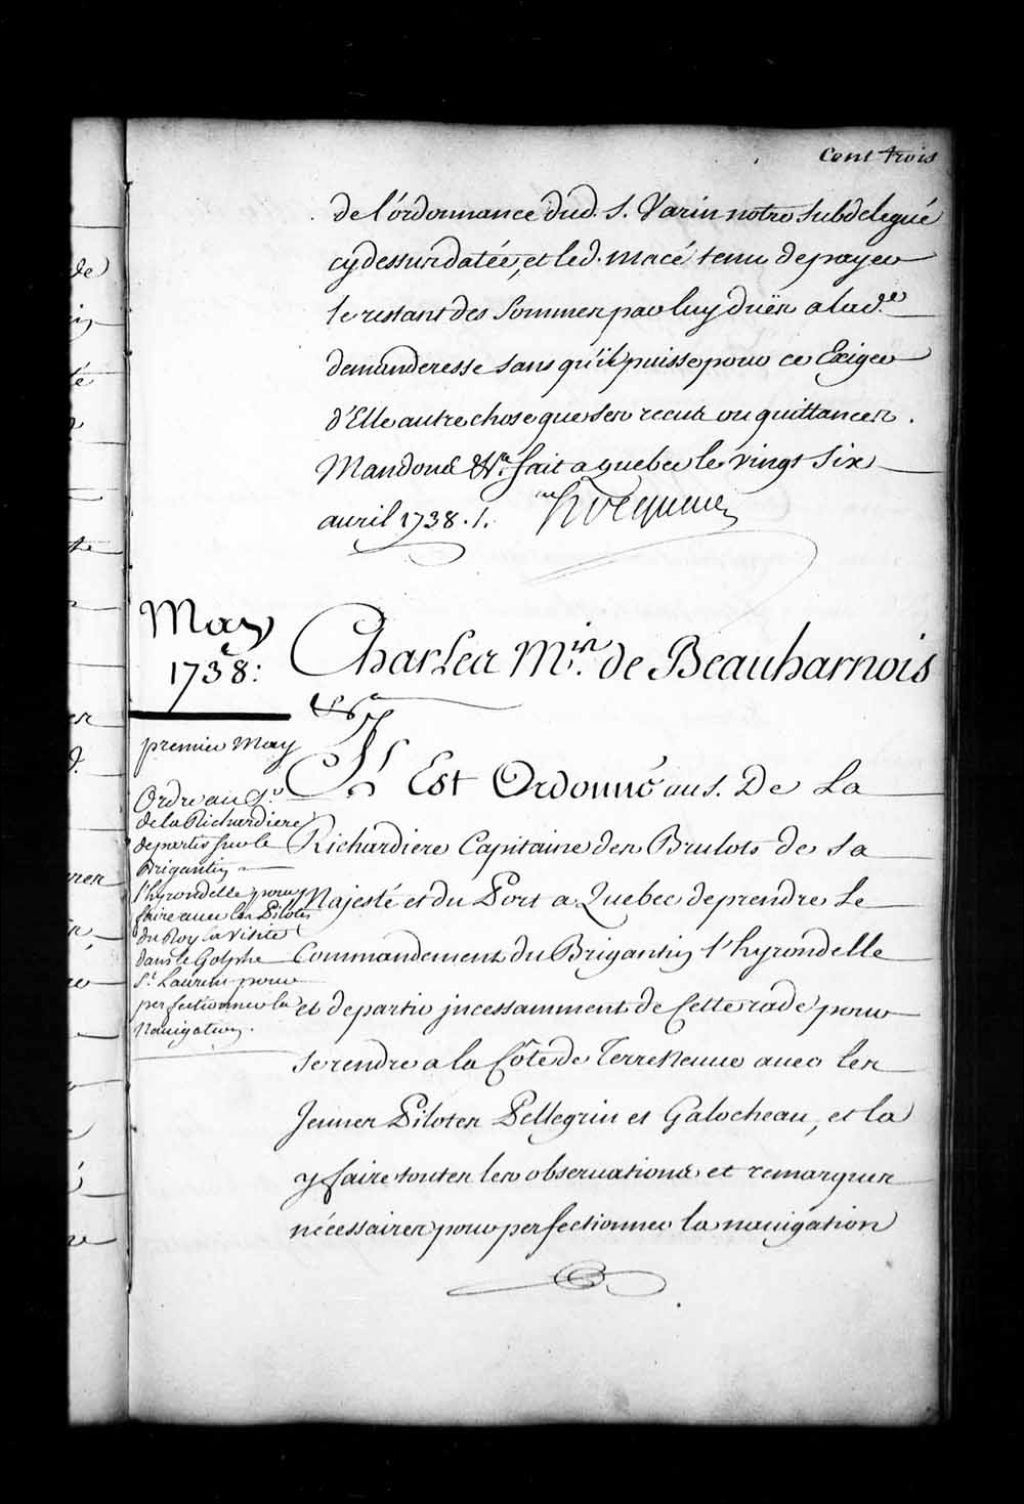 Cent trois
de l'ordonnance dud. S. Varin notre subdelegué
cydessus datée, et led. macé tenu de payer
le restant des Sommes par luy dües a lad.e
demanderesse sans qu'il puisse pour ce Exiger
d'Elle autre chose que ses recus ou quittances.
Mandons &ca. fait a quebec le vingt Six
avril 1738. /. Hocquart
May
1738:
Charles M.is de Beauharnois
&ca
premier May
Ordre au S.r
de la Richardiere
de partir sur le
Brigantin
l'hyrondelle pour
faire avec les Pilotes
du Roy la visite
dans le Golphe
S.t Laurens pour
perfectionner la
Navigation.
Il Est Ordonné au S. De La
Richardiere Capitaine des Brulots de Sa
Majesté et du Port a Quebec de prendre le
Commandement du Brigantin l'hyrondelle
et de partir incessamment de Cette rade pour
se rendre a la Côte de Terre Neuve avec les
Jeunes Pilotes Pellegrin et Galocheau, et la
y faire toutes les observations et remarques
nécessaires pour perfectionner la navigation